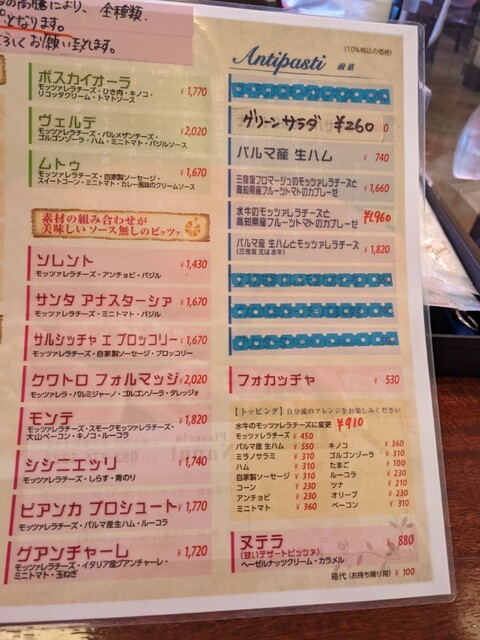 の高騰により、全種類、
となります。
ろしくお願い致します。
ボスカイオーラ
モッツァレラチーズ・ひき肉・キノコ・
リコッタクリーム・トマトソース
¥1,770
ヴェルデ
モッツァレラチーズ・パルメザンチーズ・
ゴルゴンゾーラ・ハム・ミニトマト・バジルソース
¥2,020
ムトゥ
モッツァレラチーズ・自家製ソーセージ・
スイートコーン・ミニトマト・カレー風味のクリームソース
¥1,670
素材の組み合わせが
美味しいソース無しのピッツァ
ソレント
モッツァレラチーズ・アンチョビ・バジル
¥1,430
サンタ アナスターシア
モッツァレラチーズ・ミニトマト・バジル
¥1,670
サルシッチャ エ ブロッコリー
モッツァレラチーズ・自家製ソーセージ・ブロッコリー
¥1,670
クワトロ フォルマッジ
モッツァレラ・パルミジャーノ・ゴルゴンゾーラ・タレッジョ
¥2,020
モンテ
モッツァレラチーズ・スモークモッツァレラチーズ・
大山ベーコン・キノコ・ルーコラ
¥1,820
シシニエッリ
モッツァレラチーズ・しらす・青のり
¥1,740
ビアンカ プロシュート
モッツァレラチーズ・パルマ産生ハム・ルーコラ
¥1,770
グアンチャーレ
モッツァレラチーズ・イタリア産グアンチャーレ・
ミニトマト・玉ねぎ
¥1,720
(10%税込の価格)
Antipasti 前菜
グリーンサラダ ¥260
パルマ産 生ハム ¥740
三良坂フロマージュのモッツァレラチーズと
高知県産フルーツトマトのカプレーゼ
¥1,660
水牛のモッツァレラチーズと
高知県産フルーツトマトのカプレーゼ
¥1,960
パルマ産 生ハムとモッツァレラチーズ
(三良坂 又は 水牛)
¥1,820
フォカッチャ ¥530
【トッピング】自分流のアレンジをお楽しみください
水牛のモッツァレラチーズに変更 ¥910
モッツァレラチーズ ¥450
パルマ産 生ハム ¥550
ミラノサラミ ¥310
ハム ¥310
自家製ソーセージ ¥310
コーン ¥230
アンチョビ ¥230
ミニトマト ¥360
キノコ ¥360
ゴルゴンゾーラ ¥310
たまご ¥100
ルーコラ ¥230
ツナ ¥210
オリーブ ¥210
ベーコン ¥310
ヌテラ
(甘いデザートピッツァ)
ヘーゼルナッツクリーム・カラメル
880
箱代(お持ち帰り用) ¥100